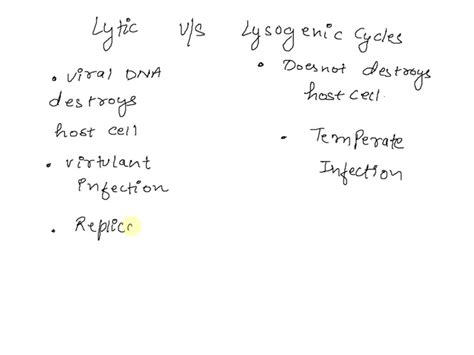 Lytic v/s Lysogenic Cycles
• Viral DNA
destroys
host cell
• virtulant
infection
• Replica
• Doesnot destroys
host cell.
• Temperate
Infection